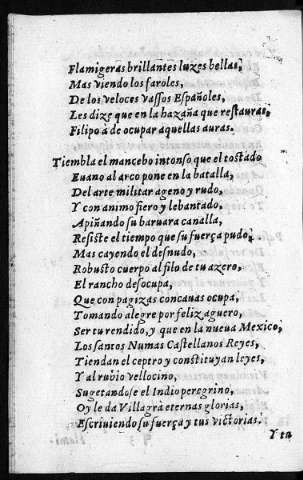 Flamigeras brillantes luzes bellas,
Mas viendo los faroles,
De los veloces vassos Españoles,
Les dize que en la hazaña que restauras,
Filipo à de ocupar aquellas auras.
Tiembla el mancebo intonso que el tostado
Euano al arco pone en la batalla,
Del arte militar ageno y rudo,
Y con animo fiero y lebantado.
Apiñando su baruara canalla,
Resiste el tiempo que su fuerça pudo,
Mas cayendo el desnudo,
Robusto cuerpo al filo de tu azero,
El rancho desocupa,
Que con pagizas concauas ocupa,
Tomando alegre por feliz aguero,
Ser tu rendido, y que en la nueua Mexico,
Los santos Numas Castellanos Reyes,
Tiendan el ceptro y constituyan leyes,
Y al rubio vellocino,
Sugetandose el Indio peregrino,
Oy le da Villagrà eternas glorias,
Escriuiendo su fuerça y tus victorias.
Y tu